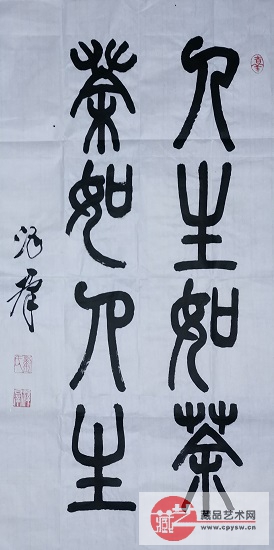 人生如茶
茶如人生
藏
藏品艺术网
www.cpysw.cn